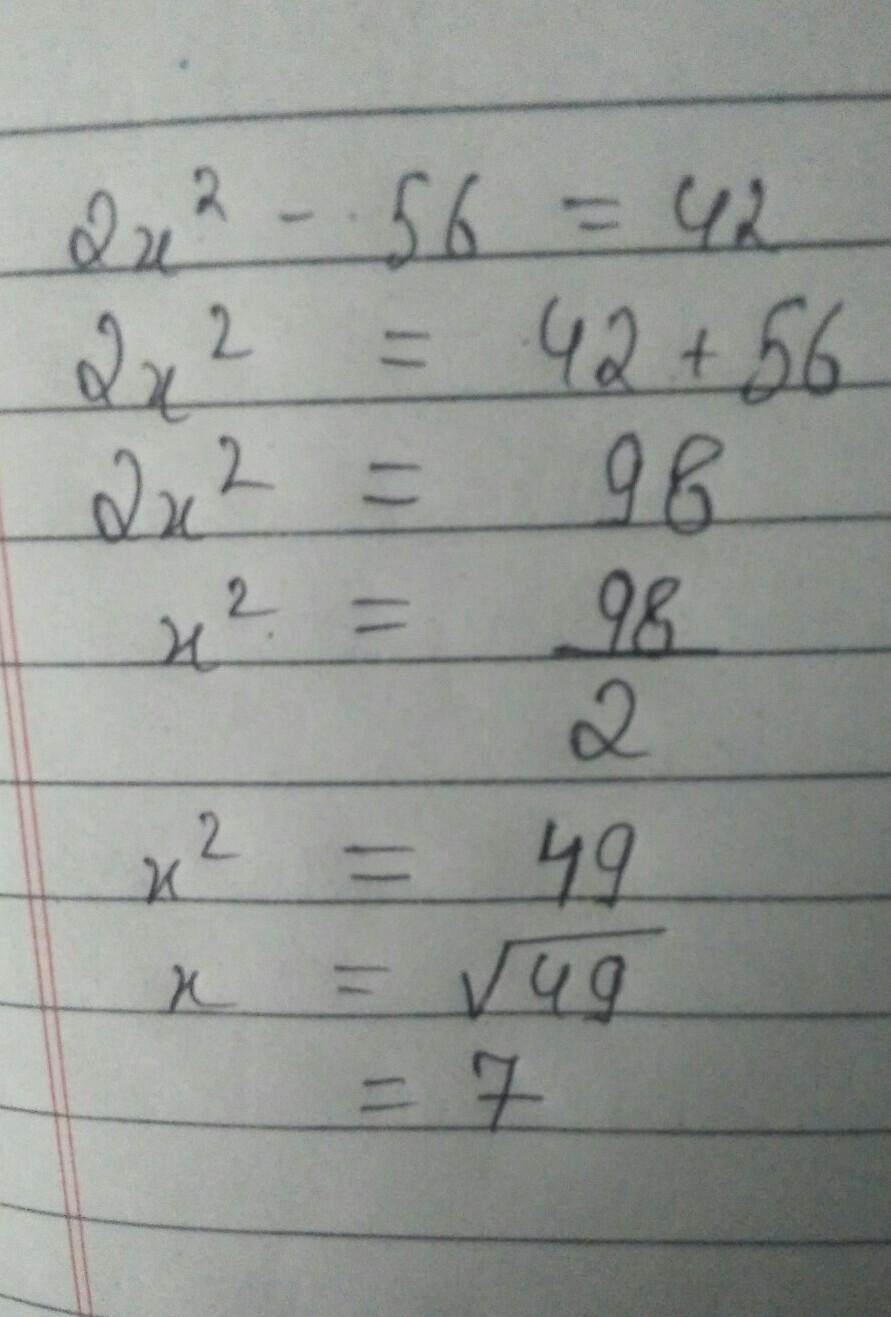 2x² - 56 = 42
2x² = 42 + 56
2x² = 98
x² = 98/2
x² = 49
x = √49
= 7